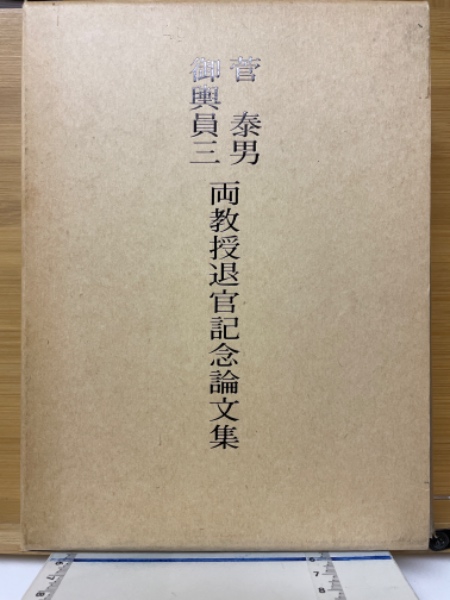 菅 泰男
御輿員三
両教授退官記念論文集
6
7
8